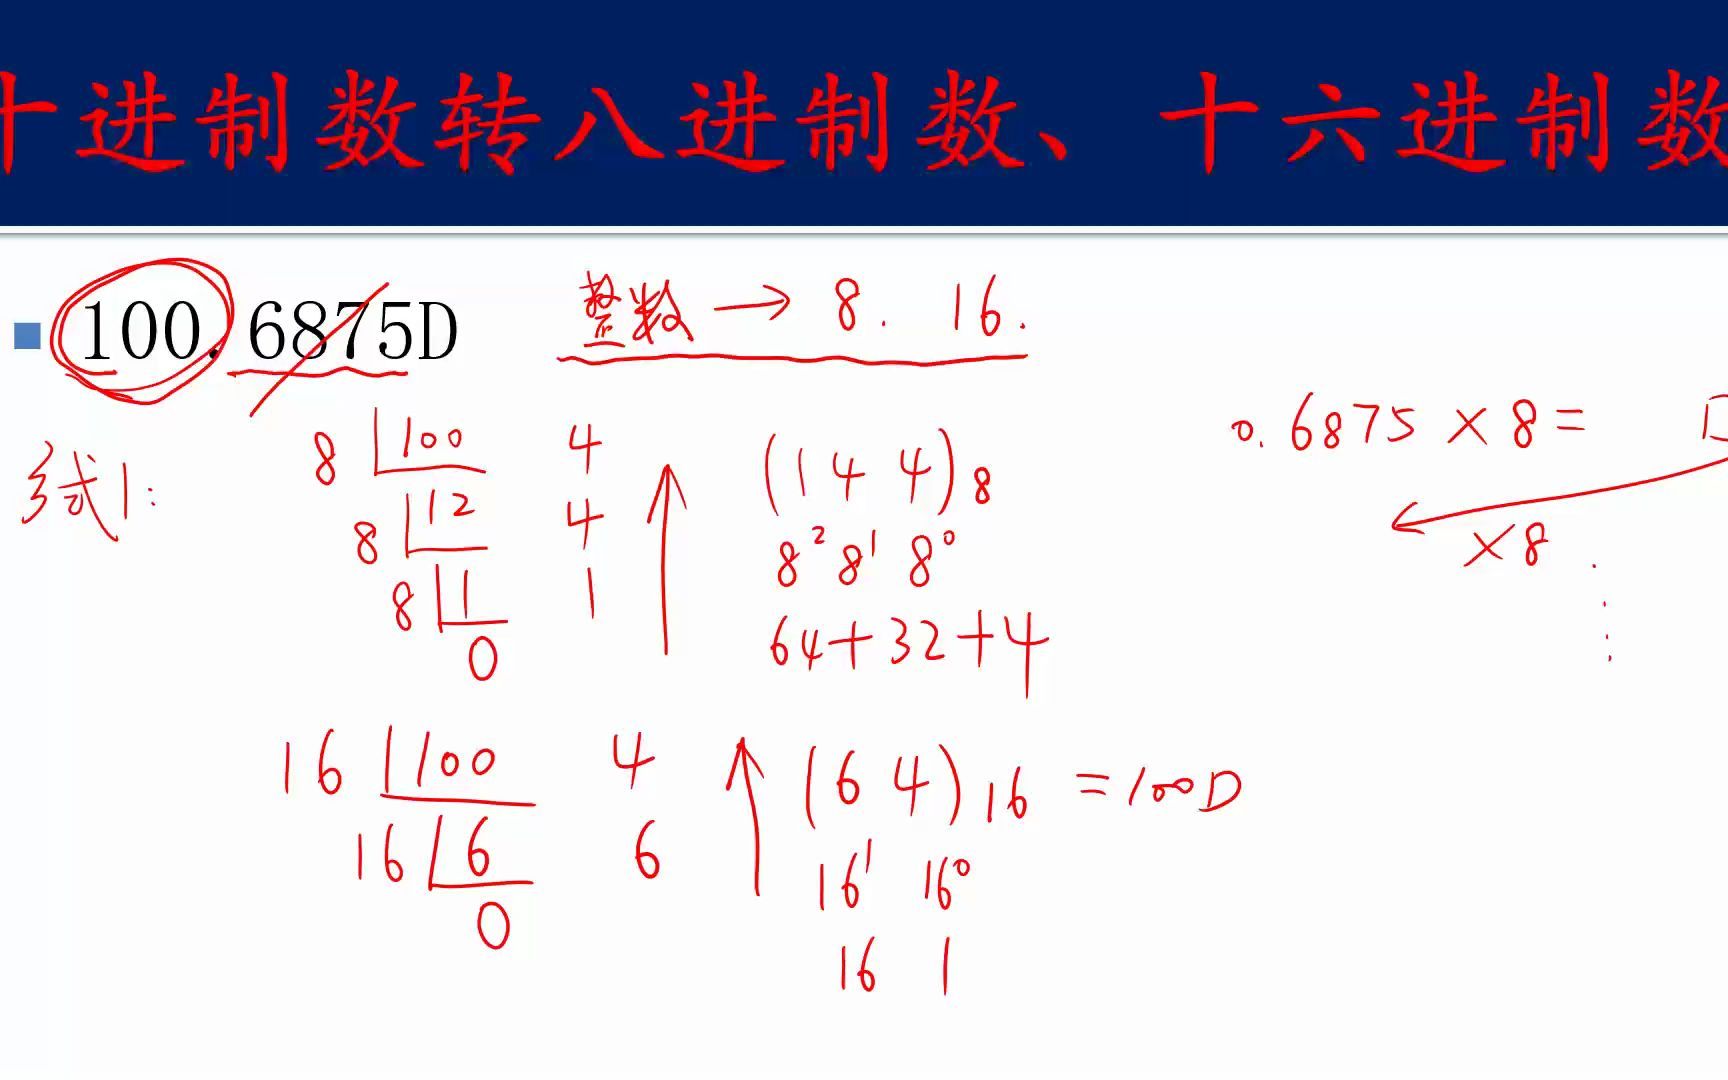 十进制数转八进制数、十六进制数
100.6875D
整数 → 8. 16.
0.6875 × 8 =
×8
方式1:
8 100 4
8 12 4
8 1 1
0
(1 4 4)₈
8² 8¹ 8⁰
64+32+4
16 100 4
16 6 6
0
(6 4)₁₆ = 100D
16¹ 16⁰
16 1